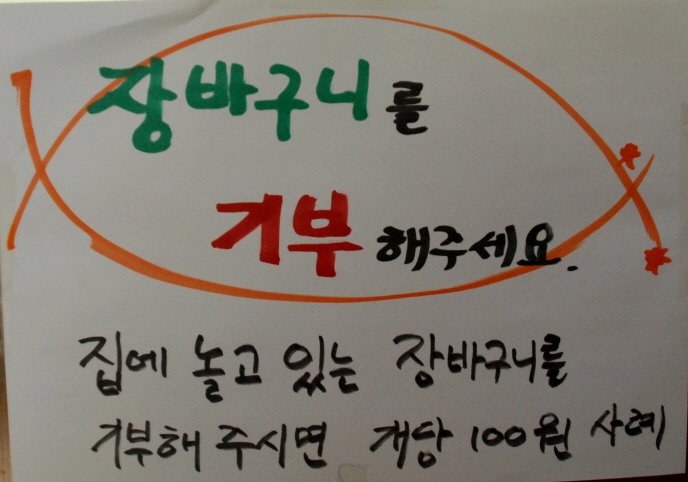 장바구니를
기부해주세요.
집에 놀고 있는 장바구니를
기부해 주시면 개당 100원 사례